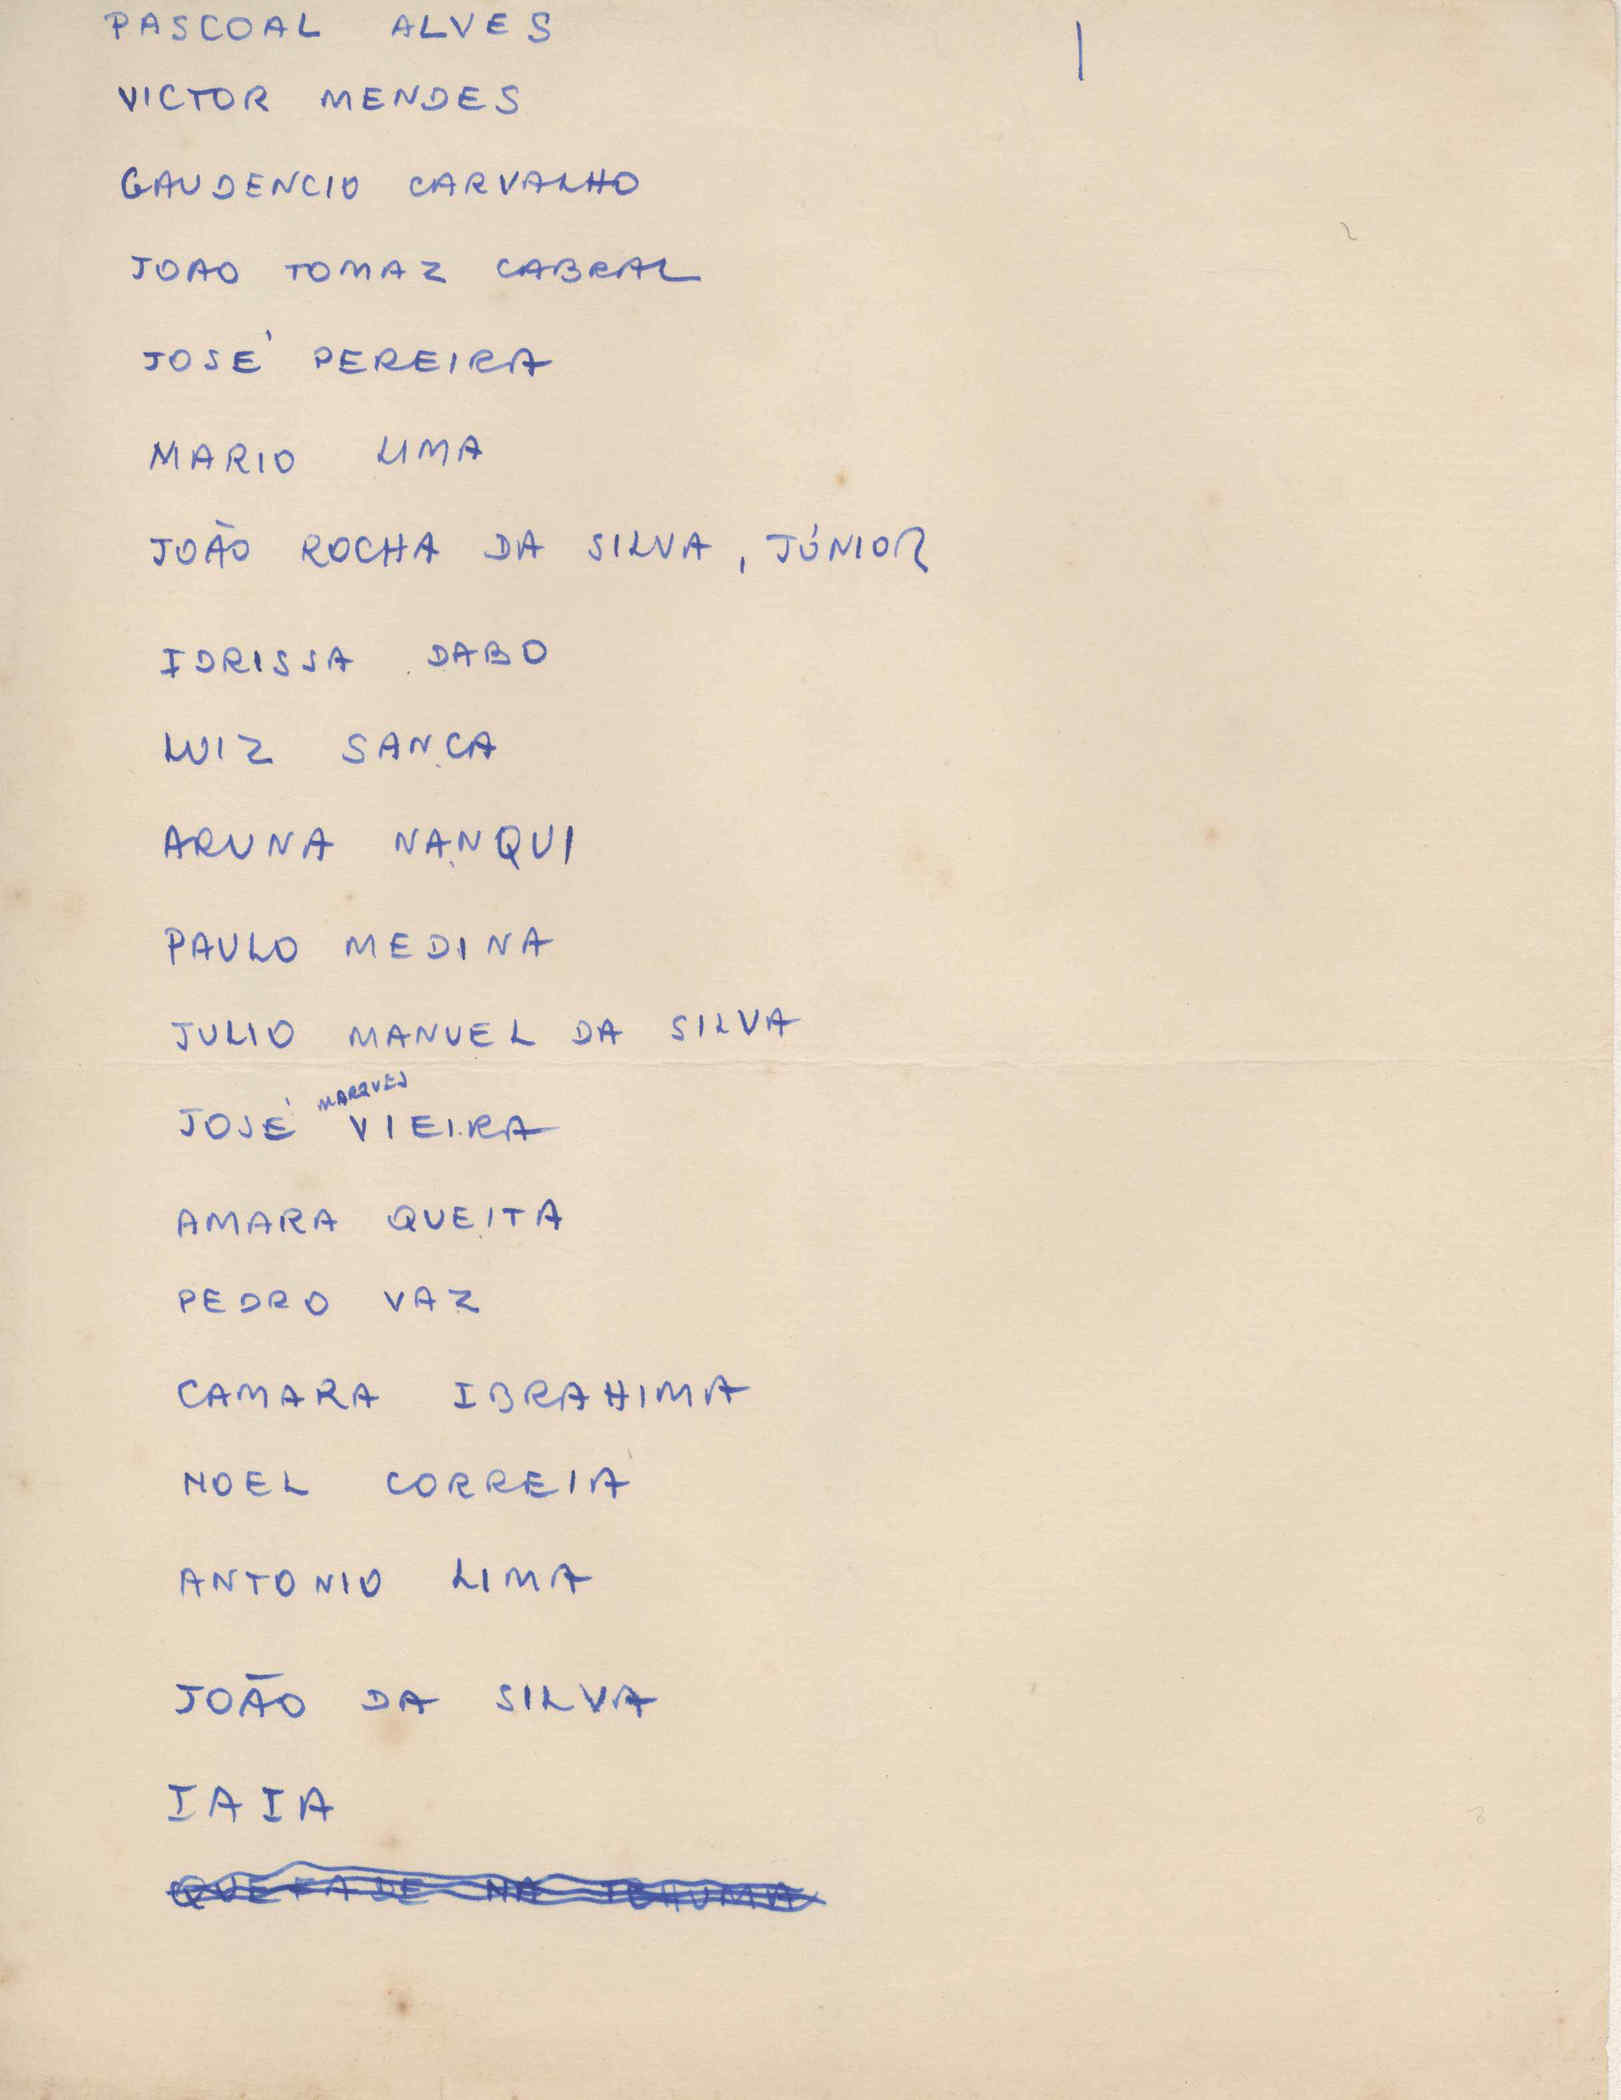 PASCOAL ALVES
VICTOR MENDES
GAUDENCIO CARVALHO
JOAO TOMAZ CABRAL
JOSÉ PEREIRA
MARIO LIMA
JOÃO ROCHA DA SILVA, JÚNIOR
IDRISSA DABO
LUIZ SANCA
ARUNA NANQUI
PAULO MEDINA
JULIO MANUEL DA SILVA
MARQUES
JOSÉ VIEIRA
AMARA QUEITA
PEDRO VAZ
CAMARA IBRAHIMA
NOEL CORREIA
ANTONIO LIMA
JOÃO DA SILVA
IAIA
NA